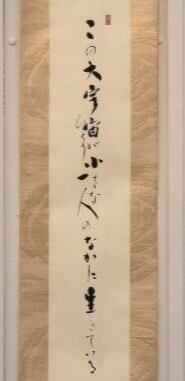 この大宇宙が小さな一人のなかに生きている